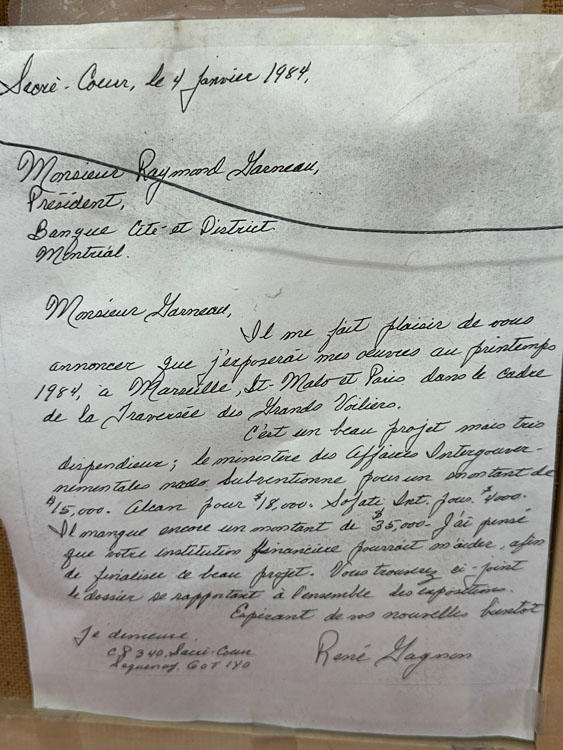 Sacré-Coeur, le 4 janvier 1984,
Monsieur Raymond Garneau,
Président,
Banque Cité et District
Montréal.
Monsieur Garneau,
Il me fait plaisir de vous
annoncer que j'exposerai mes œuvres au printemps
1984, à Marseille, St-Malo et Paris, dans le cadre
de la Traversée des Grands Voiliers.
C'est un beau projet mais très
dispendieux; le ministère des Affaires Intergouver-
nementales nous subventionne pour un montant de
$15,000. Alcan pour $18,000. Sofati Int. pour $4000.
Il manque encore un montant de $35,000. J'ai pensé
que votre institution financière pourrait m'aider, afin
de finaliser ce beau projet. Vous trouverez ci-joint
le dossier se rapportant à l'ensemble des expositions.
Espérant de vos nouvelles bientôt
Je demeure
René Gagnon
CP 340, Sacré-Coeur
Saguenay, G0T 1Y0